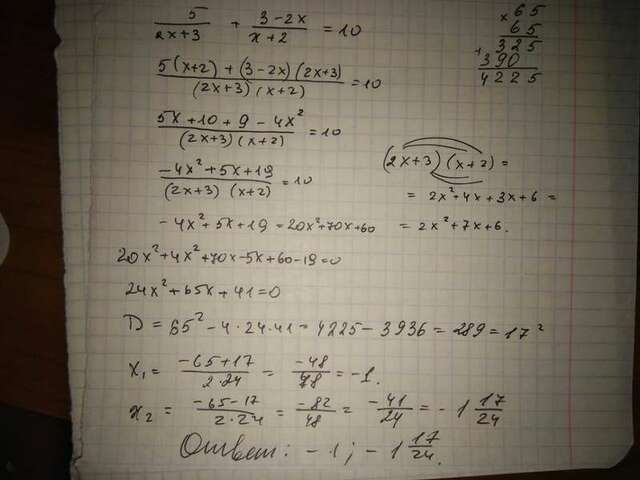 5/(2x+3) + (3-2x)/(x+2) = 10
(5(x+2) + (3-2x)(2x+3))/((2x+3)(x+2)) = 10
(5x+10+9-4x²)/((2x+3)(x+2)) = 10
(-4x²+5x+19)/((2x+3)(x+2)) = 10
-4x²+5x+19 = 20x²+70x+60
20x²+4x²+70x-5x+60-19=0
24x²+65x+41=0
D = 65²-4·24·41 = 4225-3936 = 289 = 17²
x₁ = (-65+17)/(2·24) = -48/48 = -1.
x₂ = (-65-17)/(2·24) = -82/48 = -41/24 = -1 17/24
Ответ: -1; -1 17/24.
×65
65
+325
390
4225
(2x+3)(x+2) =
= 2x²+4x+3x+6 =
= 2x²+7x+6.